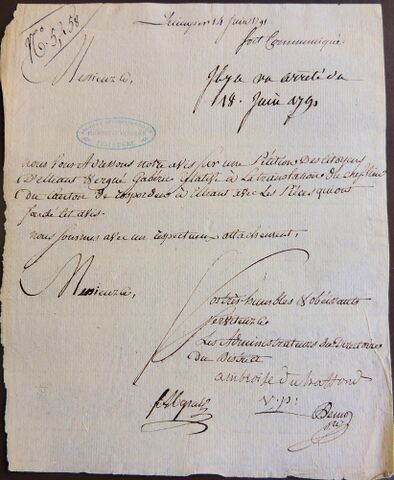 N.° 5,258
Quimper 14 Juin 1791
fort Communiqué
Messieurs,
Il y a un arreté du
18. Juin 1791
FINISTÈRE
nous vous adressons notre avis sur une Pétition Des Citoyens
D'elleant Vergne Gabrié Relative à La translation du chef lieu
du Canton de rosporden à elleant avec Les Pièces qui ont
fondé cet avis.
nous sommes avec un respectueux attachement,
Messieurs,
Vos très humbles & obéissants
serviteurs
Les Administrateurs du Directoire
du District
ambroise
v. p.